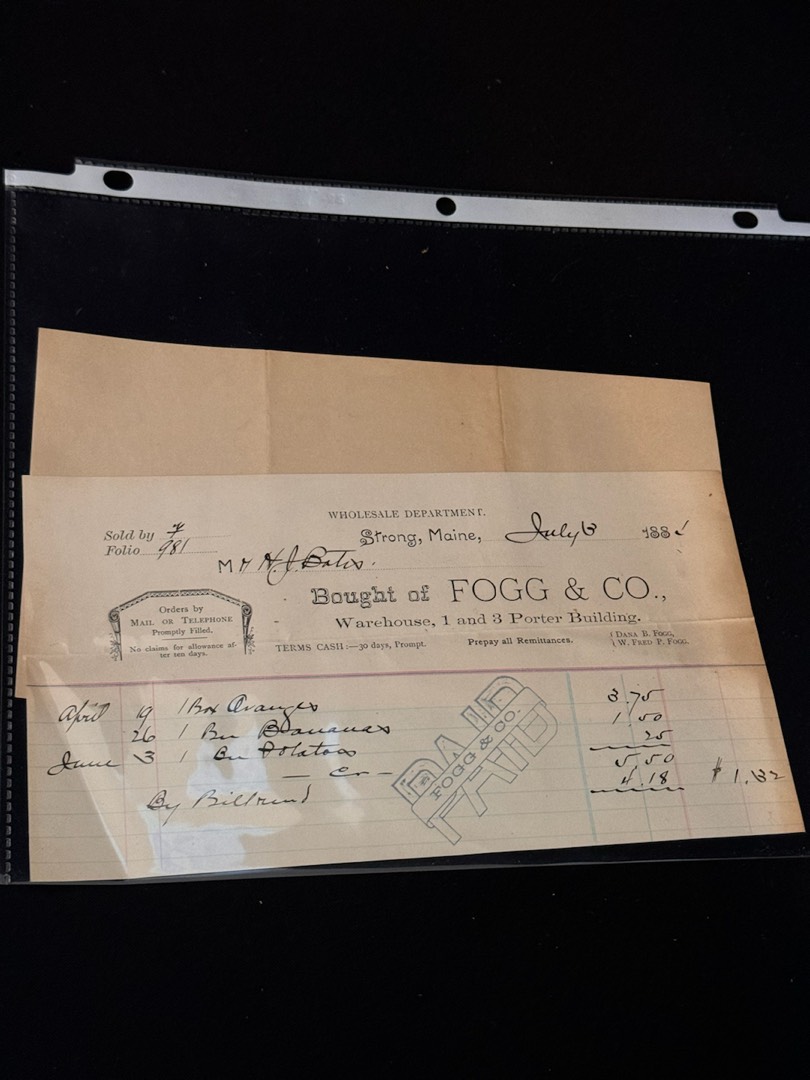 WHOLESALE DEPARTMENT.
Sold by
Folio 981
Strong, Maine, July 188
M H. J. Bates.
Bought of FOGG & CO.,
Warehouse, 1 and 3 Porter Building.
Orders by
MAIL OR TELEPHONE
Promptly Filled.
No claims for allowance af-
ter ten days.
TERMS CASH:—30 days, Prompt.
Prepay all Remittances.
DANA B. FOGG,
W. FRED P. FOGG.
April 19 1 Box Oranges 3.75
26 1 Bu Bananas 1.50
June 3 1 Bu Potatoes 25
5.50
— Cr —
By Bill rend 4.18 $1.32
PAID
FOGG & CO.
PAID